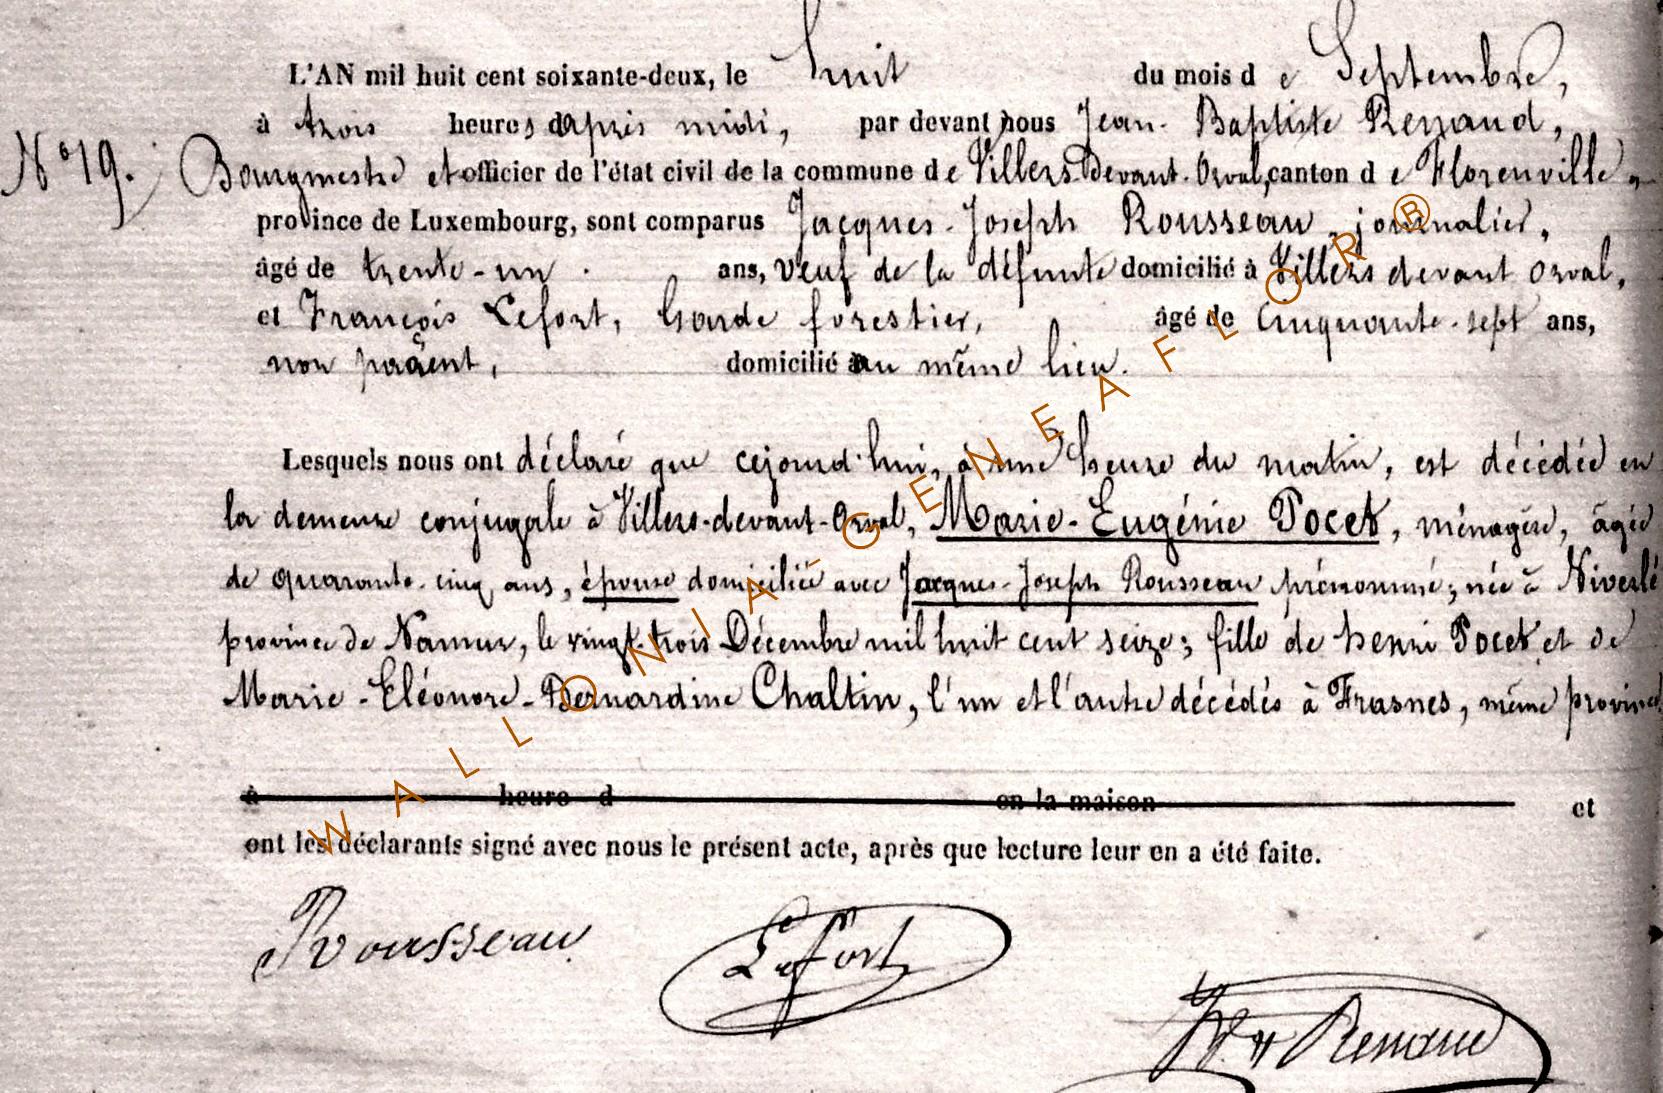 L'AN mil huit cent soixante-deux, le huit du mois d e Septembre,
à trois heures d'après midi, par devant nous Jean-Baptiste Renaud,
N° 19. Bourgmestre et officier de l'état civil de la commune de Villers-devant-Orval, canton d e Florenville,
province de Luxembourg, sont comparus Jacques-Joseph Rousseau, journalier,
âgé de trente-un ans, veuf de la défunte domicilié à Villers devant Orval,
et François Lefort, Garde forestier, âgé de Cinquante-sept ans,
non parent, domicilié au même lieu.
Lesquels nous ont déclaré que cejourd'hui, à une heure du matin, est décédée en
la demeure conjugale à Villers-devant-Orval, Marie-Eugénie Pocet, ménagère, âgée
de quarante-cinq ans, épouse domiciliée avec Jacques-Joseph Rousseau prénommé; née à Niverlé
province de Namur, le vingt-trois Décembre mil huit cent seize; fille de henri Pocet et de
Marie-Eléonore-Bernardine Chaltin, l'un et l'autre décédés à Frasnes, même province
à heure d en la maison et
ont les déclarants signé avec nous le présent acte, après que lecture leur en a été faite.
Rousseau
Lefort
Renaud
WALLONIA-GENEAFLOR®